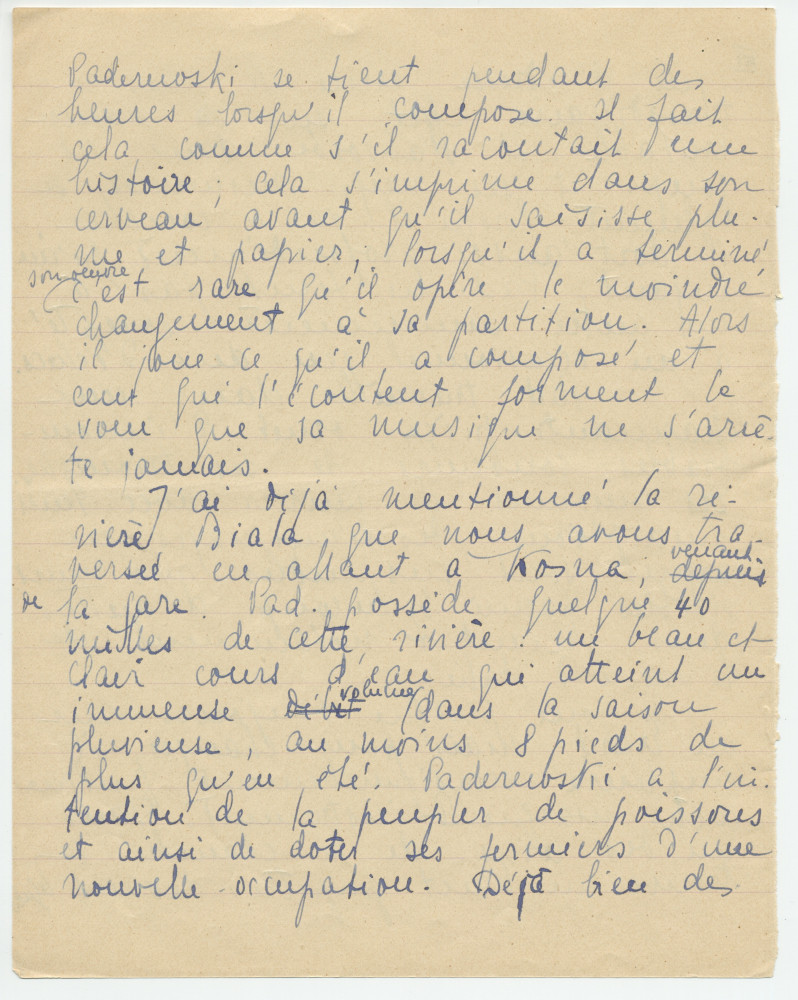 Paderewski se tient pendant des
heures lorsqu'il compose. Il fait
cela comme s'il racontait une
histoire ; cela s'imprime dans son
cerveau avant qu'il saisisse plu-
me et papier, lorsqu'il a terminé
son oeuvre
c'est rare qu'il opère le moindre
changement à sa partition. Alors
il joue ce qu'il a composé, et
ceux qui l'écoutent forment le
voeu que sa musique ne s'arrê-
te jamais.
J'ai déjà mentionné la ri-
vière Biala que nous avons tra-
versée en allant à Kosna, depuis
venant
de la gare. Pad. possède quelque 40
milles de cette rivière : un beau et
clair cours d'eau qui atteint un
immense débit volume dans la saison
pluvieuse, au moins 8 pieds de
plus qu'en été. Paderewski a l'in-
tention de la peupler de poissons
et ainsi de doter ses fermiers d'une
nouvelle occupation. Déjà bien des